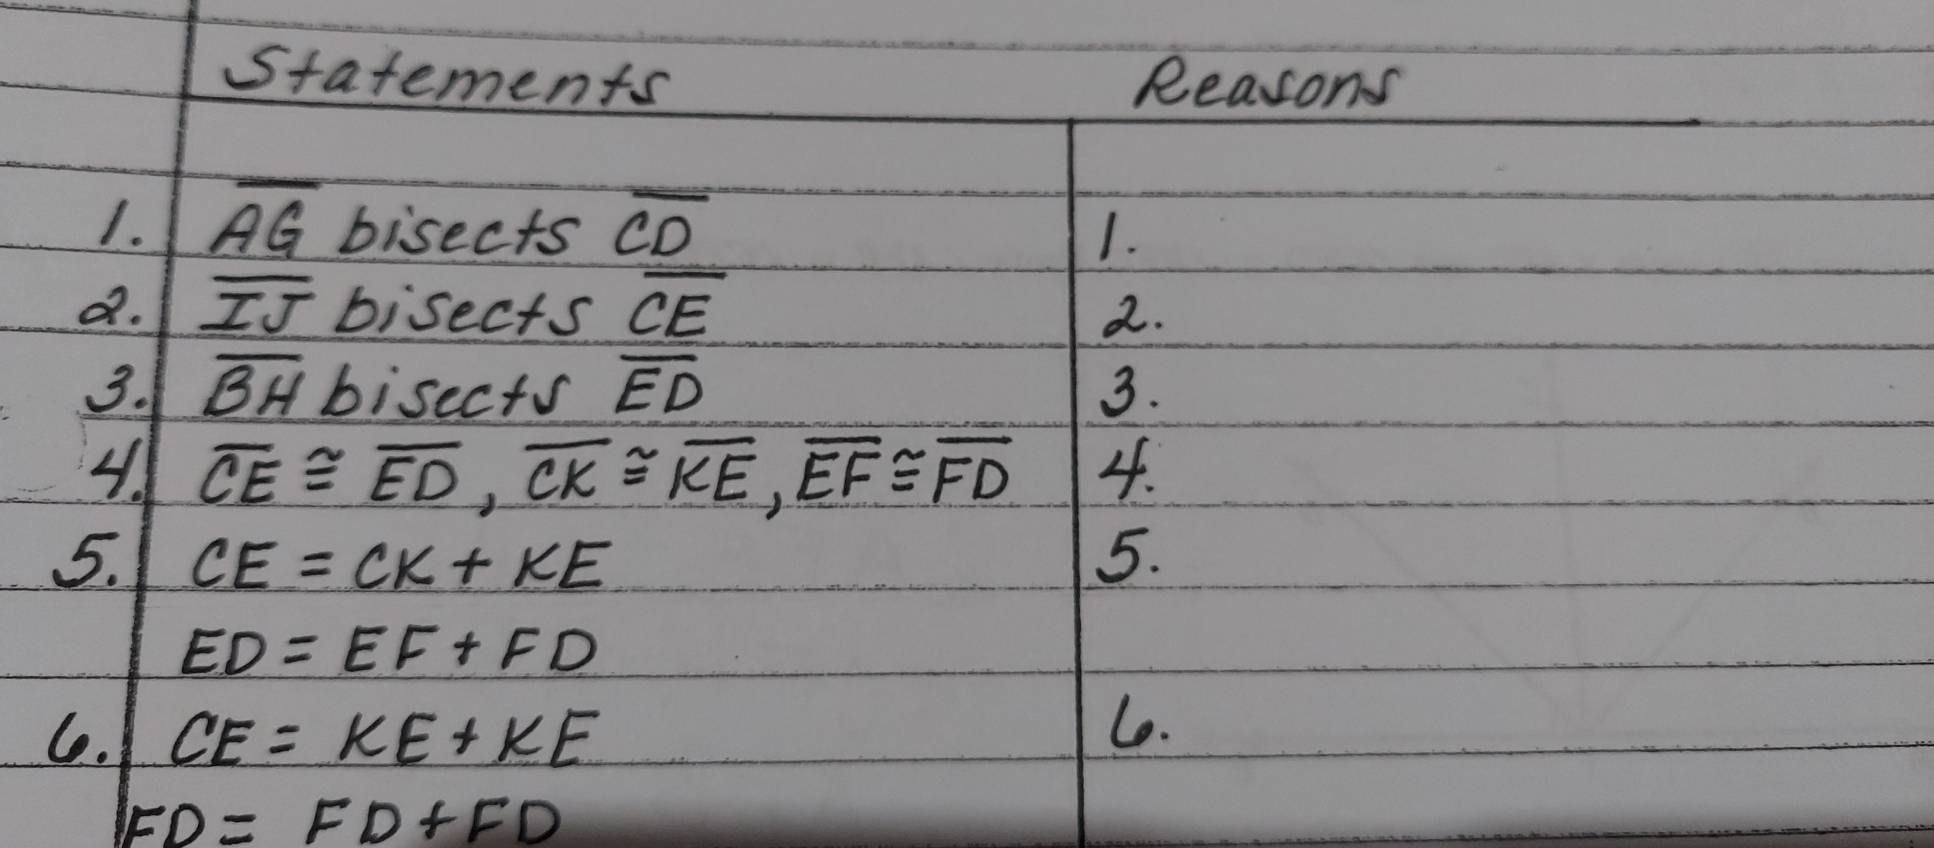 Statements Reasons
1. A͞G͞ bisects C͞D͞ 1.
2. I͞J͞ bisects C͞E͞ 2.
3. B͞H͞ bisects E͞D͞ 3.
4. C͞E͞ ≅ E͞D͞, C͞K͞ ≅ K͞E͞, E͞F͞ ≅ F͞D͞ 4.
5. CE = CK + KE 5.
ED = EF + FD
6. CE = KE + KE 6.
FD = FD + FD